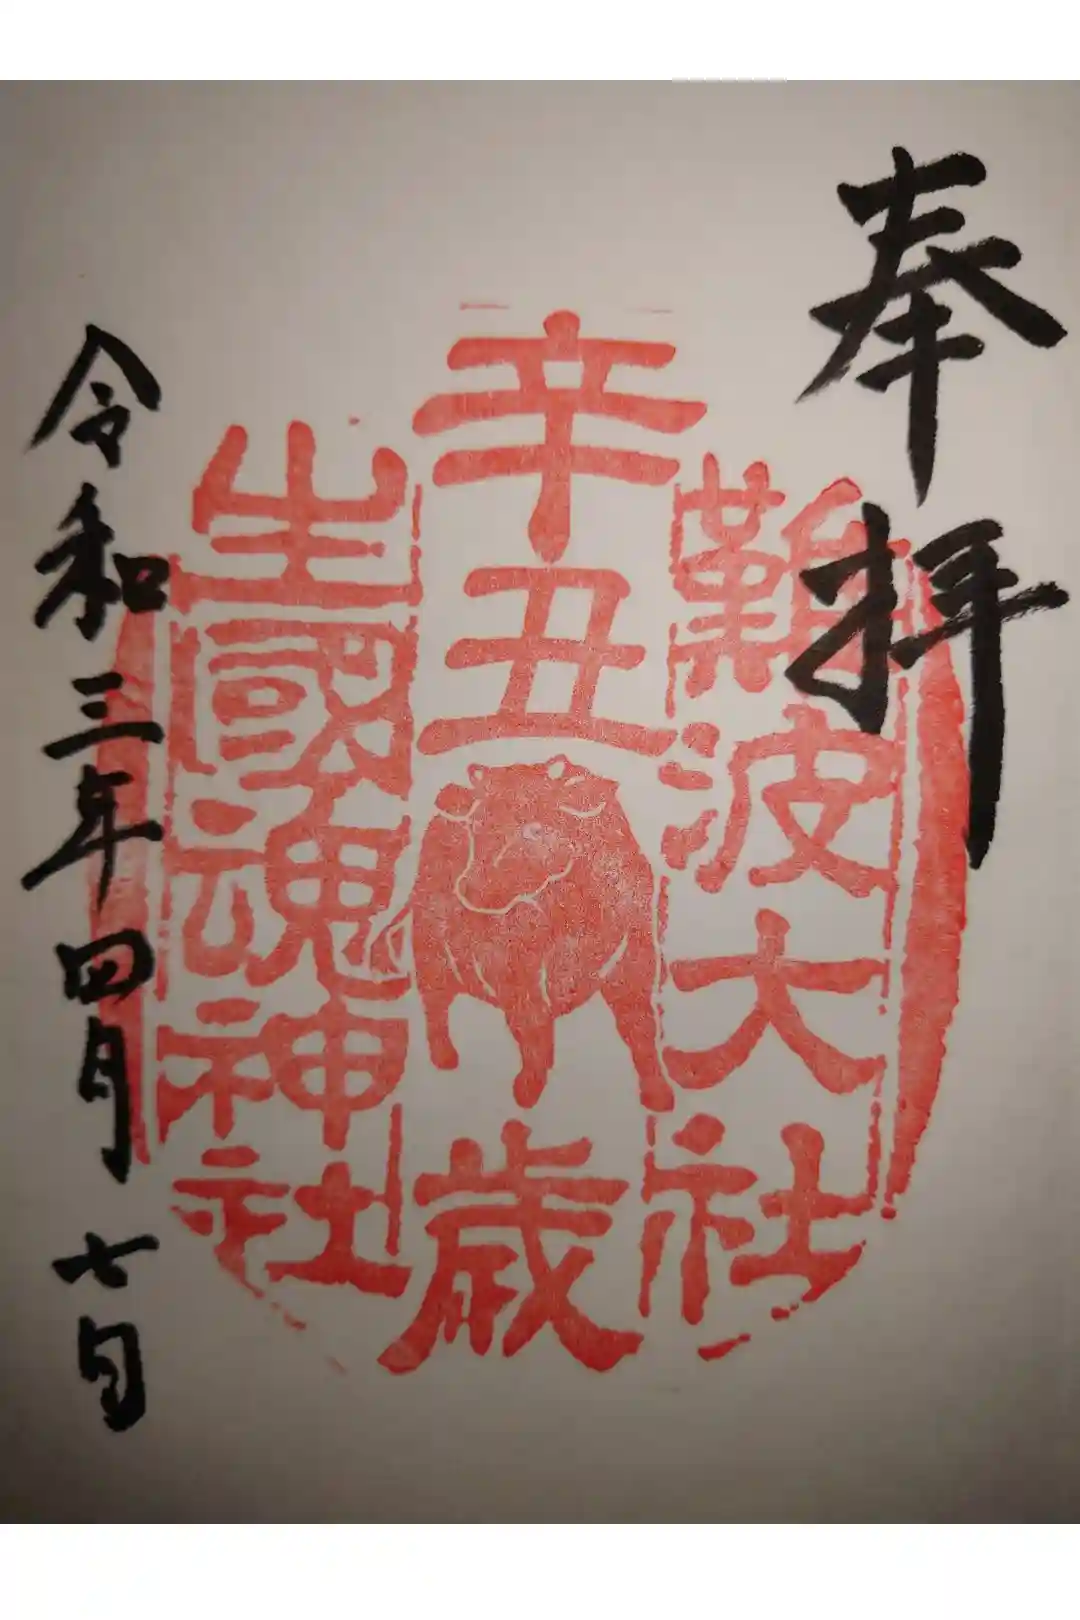 奉拝
難波大社
辛丑
歳
生國魂神社
令和三年四月七日